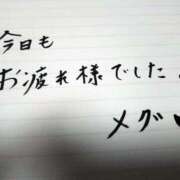 今日も
お疲れ様でした
メグ♥